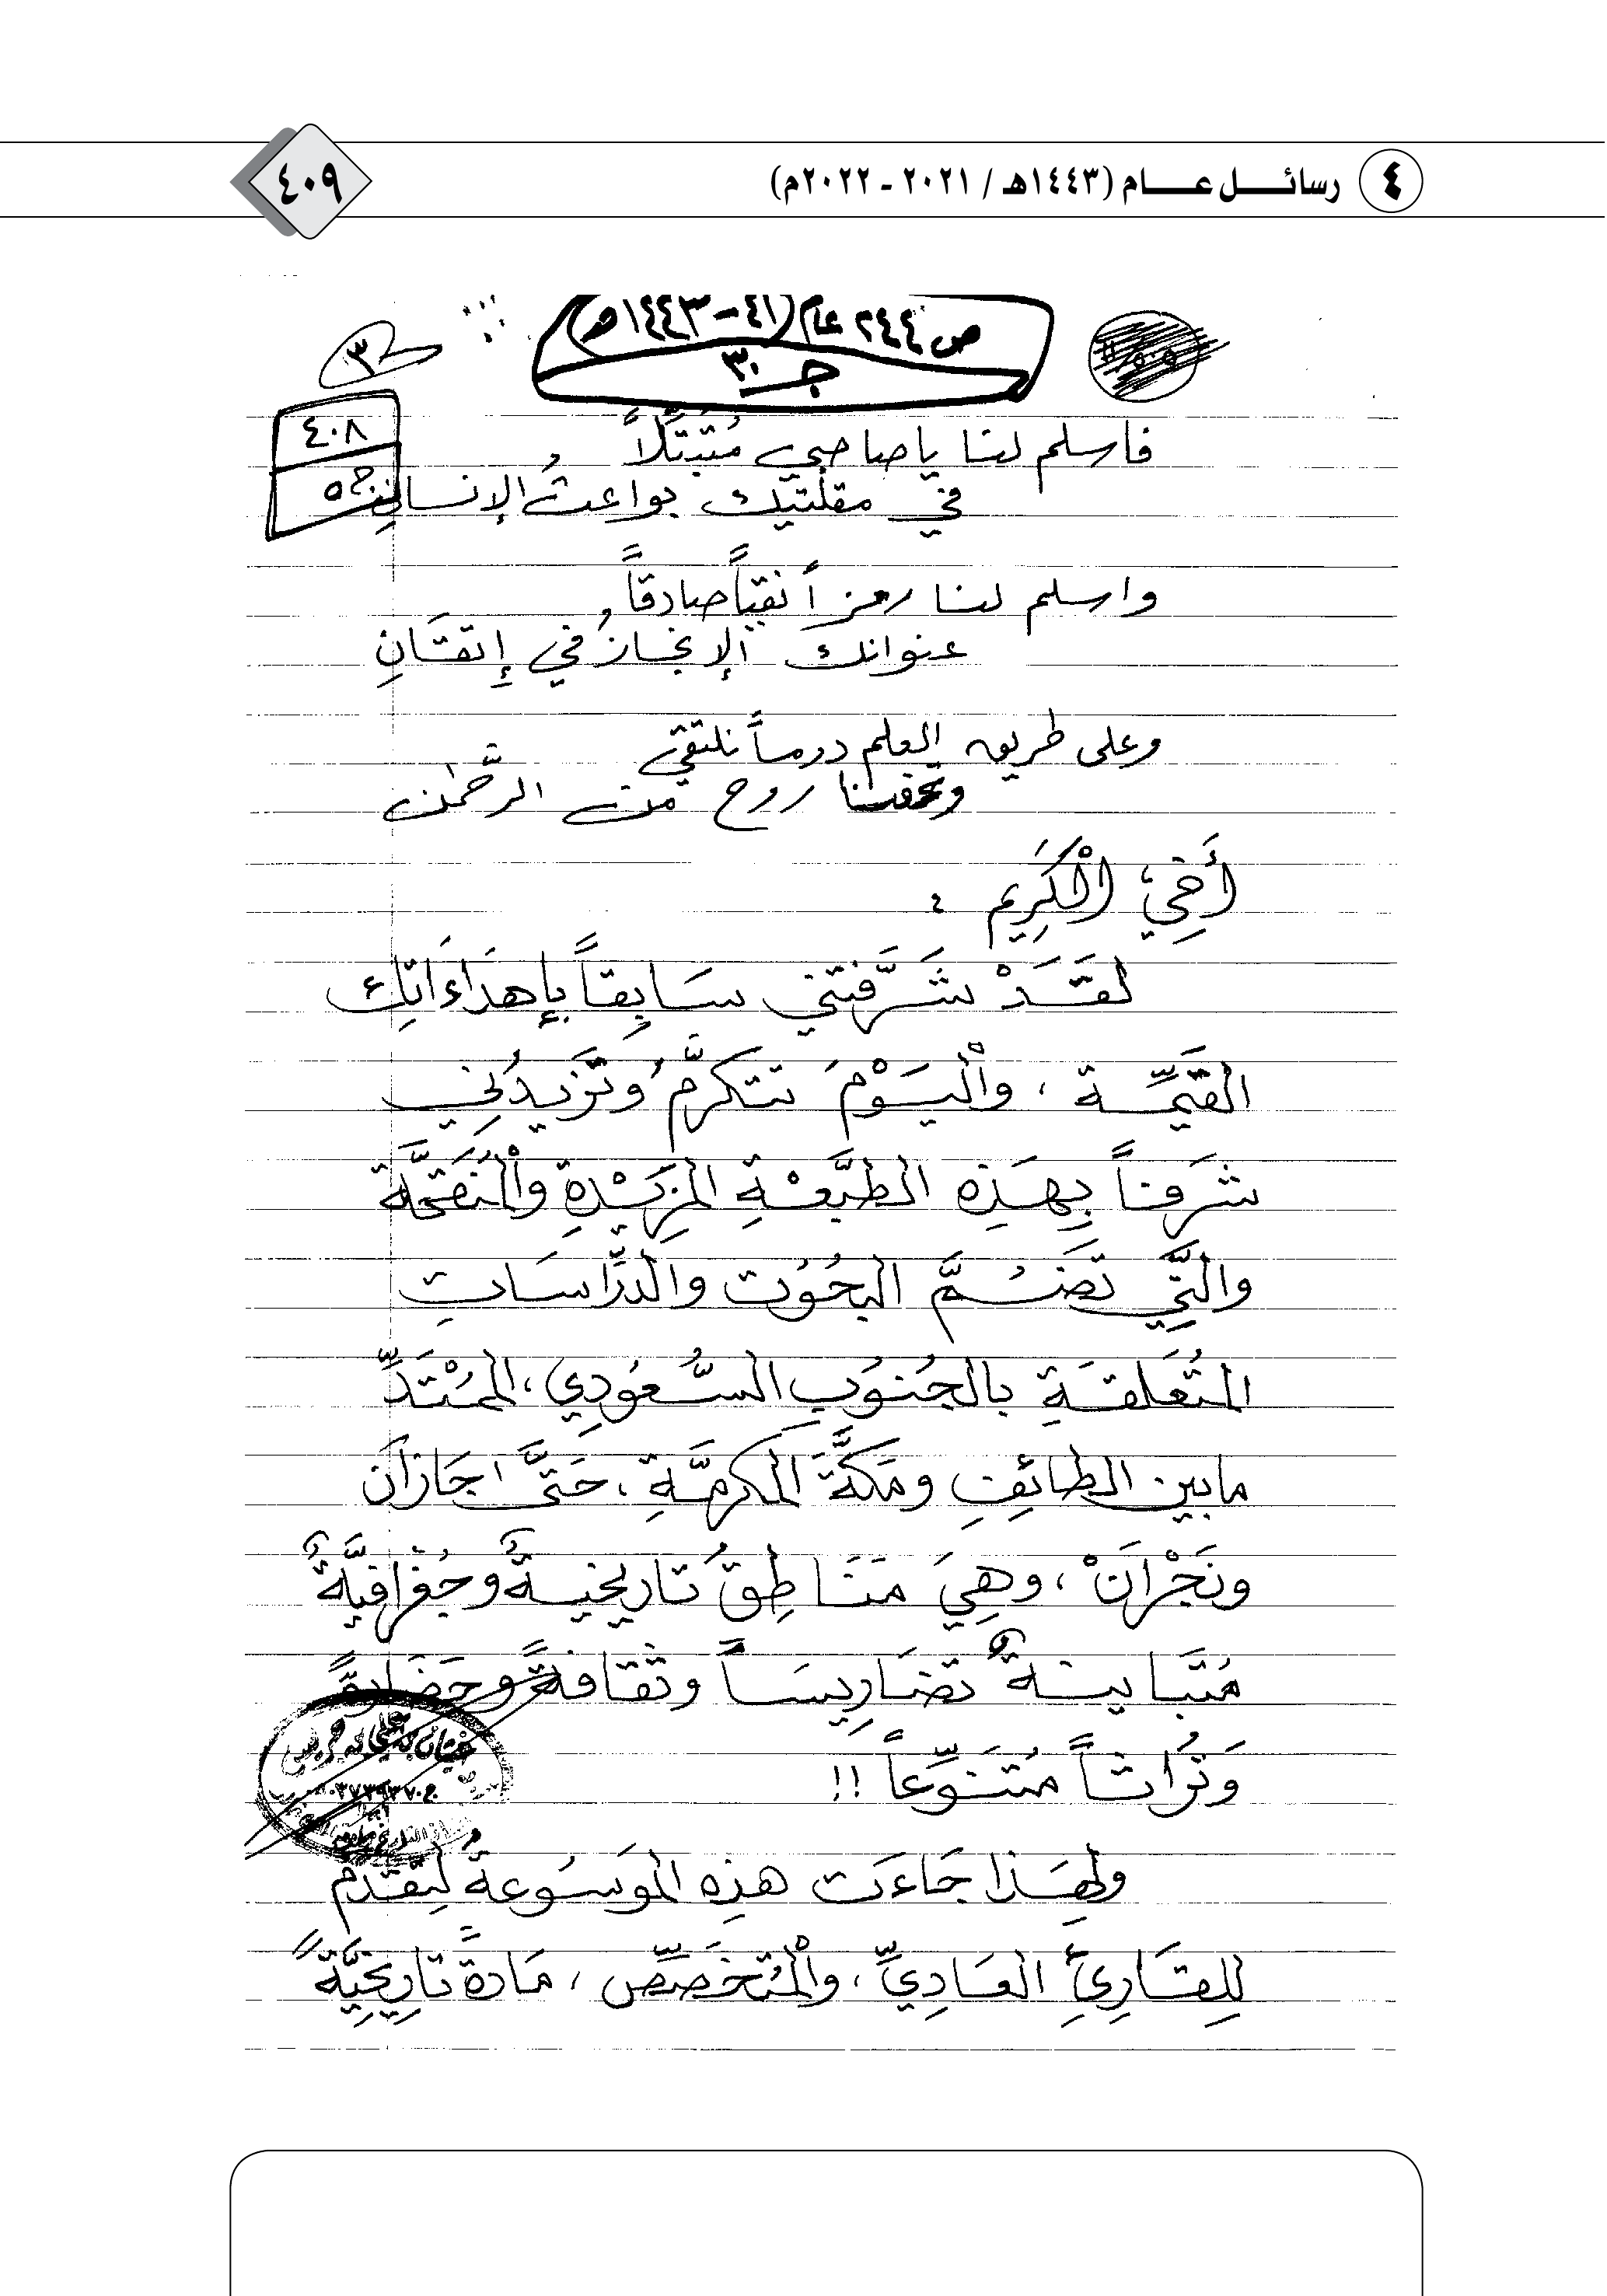 ٤ رسائـــل عـــــام (١٤٤٣هـ / ٢٠٢١ - ٢٠٢٢م)
٤٠٩
ص ٢٤٤ عام (٤١ - ١٤٤٣هـ)
جـ ٣٠
٣
٤٠٨
ج ٥
فاسلم لنا يا صاحبي مُتَبَتِّلاً
في مقلتيك بواعثُ الإنسانِ
واسلم لنا رمزاً نقيّاً صادقاً
عنوانك الإنجازُ في إتقَانِ
وعلى طريق العلم دوماً نلتقي
روح من الرَّحمٰن
أَخِي الْكَرِيم ،
لقَدْ شَرَّفتني سَابِقاً بإهدَاءَاتِك
القَيِّمَة ، والْيَوْمَ تتكرَّمُ وتَزيدُني
شرَفاً بِهَذِه الطَّبْعَةِ المَزِيْدةِ والْمُنَقَّحَة
والَّتِي تَضُمُّ البُحُوْث والدِّرَاسَاتِ
المُتعَلقَةِ بالجَنُوبِ السُّعُودِي ، المُمْتَدِّ
مابين الطائِفِ ومَكَّةَ المكرمَّةِ ، حَتَّى جَازَانَ
ونَجْرَانْ ، وهِيَ مَنَاطِقُ تاريخيةٌ وجُغْرافيَّةٌ
مُتَبَاينةٌ تضَارِيسَاً وثقافةً وحَضَارةً
وَتُرَاثاً مُتَنَوِّعاً !!
ولِهَذا جَاءَت هذِه المَوسُوعةُ لتقدم
لِلقَارِئِ العَادِيِّ ، والْمُتَخَصِّصِ ، مَادةً تارِيخِيَّةً